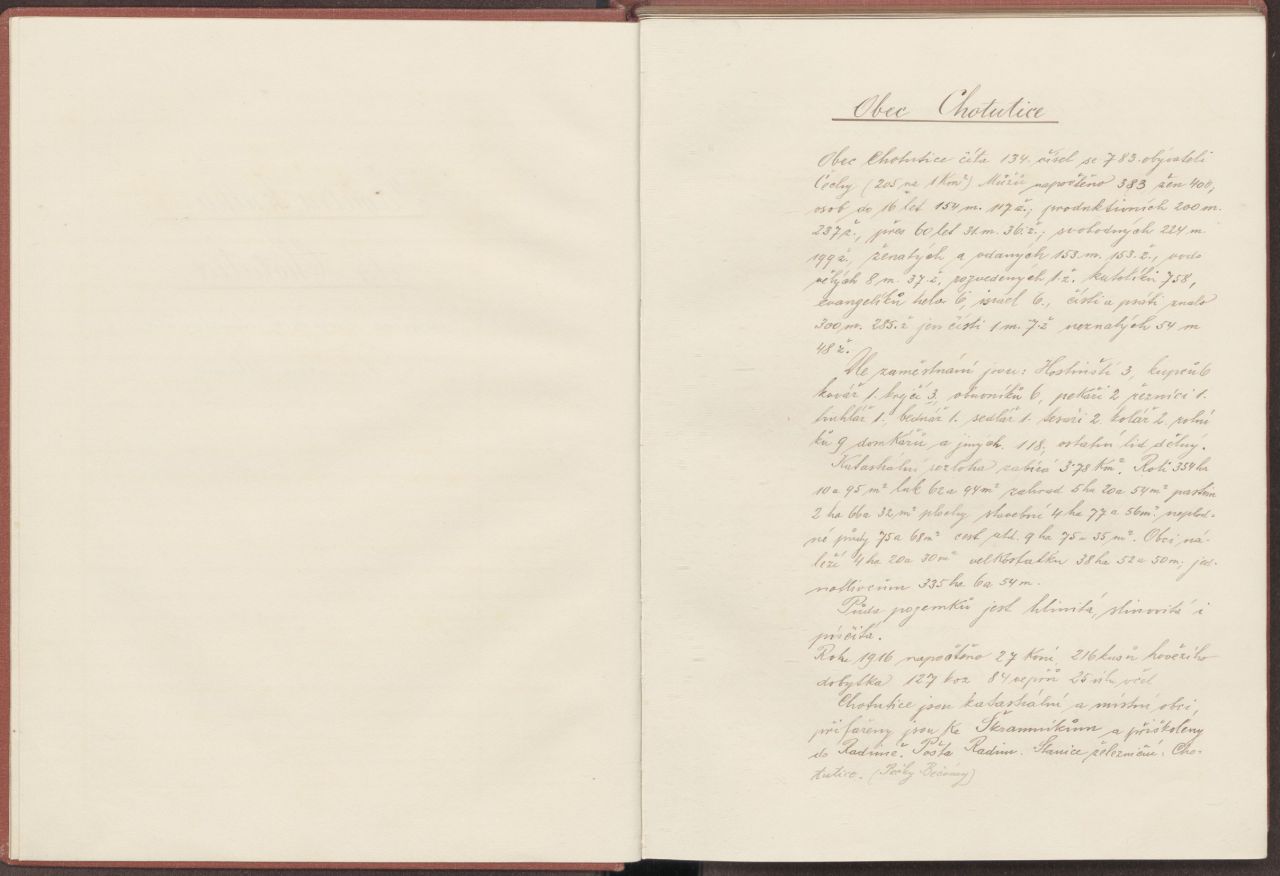 Obec Chotutice
Obec Chotutice čítá 134 čísel se 783 obyvateli
Čechy (205 na 1 Km²) Mužů napočteno 383 žen 400,
osob do 16 let 154 m. 117 ž.; produktivních 200 m.
237 ž., přes 60 let 31. m. 36. ž.; svobodných 224 m
199 ž., ženatých a vdaných 153. m. 153. ž., vdo
vělých 8 m. 37. ž. rozvedených 1. ž. katolíků 758,
evangelíků helv. 6, israel 6., čísti a psáti znalo
300 m. 285. ž jen čísti 1 m. 7. ž neznalých 54 m
48 ž.
Dle zaměstnání jsou: Hostinští 3, kupců 6
kovář 1. krejčí 3, obuvníků 6, pekaři 2 řezníci 1.
truhlář 1. bednář 1. sedlář 1. tesaři 2. kolář 2. rolní
ků 9 domkářů a jiných 118; ostatní lid dělný.
Katastrální rozloha zabírá 3.78 Km². Rolí 354 ha
10 a 95 m² luk 62 a 94 m² zahrad 5 ha 20 a 54 m² pastvin
2 ha 66 a 32 m² plochy stavební 4 ha 77 a 56 m². neplod-
né půdy 75 a 68 m² cest atd. 9 ha 75 a 35 m². Obci ná-
leží 4 ha 20 a 30 m² velkostatku 38 ha 52 a 50 m, jed-
notlivcům 335 ha 6 a 54 m.
Půda pozemků jest hlinitá, slinovitá i
písčitá.
Roku 1916 napočteno 27 Koní 216 kusů hovězího
dobytka 127 koz 84 vepřů 25 úlů včel
Chotutice jsou katastrální a místní obcí,
přifařeny jsou Ke Skramníkům a přiškoleny
do Radimě. Pošta Radim. Stanice železniční: Cho-
tutice. (Pečky Bečváry)